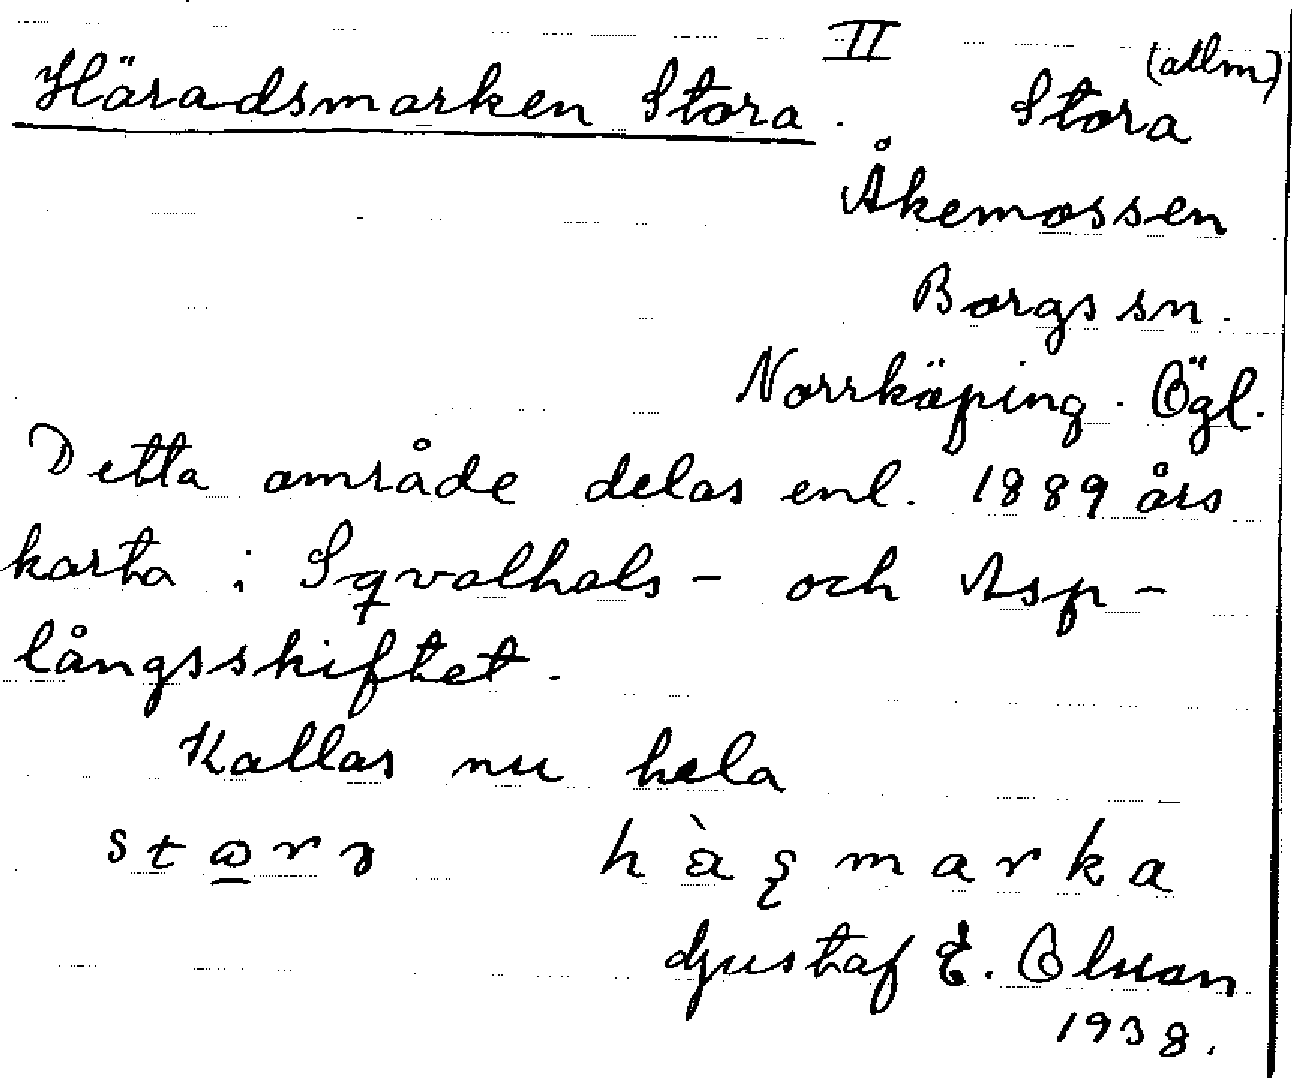 II
Häradsmarken Stora. Stora (allm)
Åkemossen
Borgs sn.
Norrköping. Ögl.
Detta område delas enl. 1889 års
karta i Sqvalhals- och Asp-
långsskiftet.
Kallas nu hela
marka
Gustaf E. Olsson
1938.